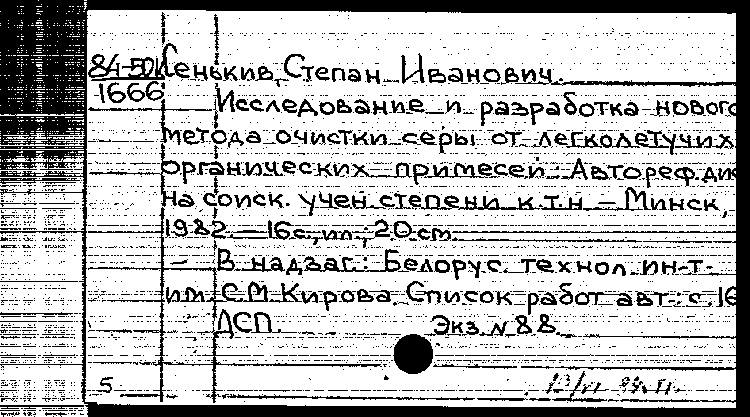 84-50 Сенькив, Степан Иванович.
1666
Исследование и разработка нового
метода очистки серы от легколетучих
органических примесей: Автореф. дис
на соиск. учен. степени к.т.н. – Минск,
1982. – 16 с., ил.; 20 см.
– В надзаг.: Белорус. технол. ин-т.
им. С.М. Кирова. Список работ авт.: с. 16
ДСП. Экз. № 88
5